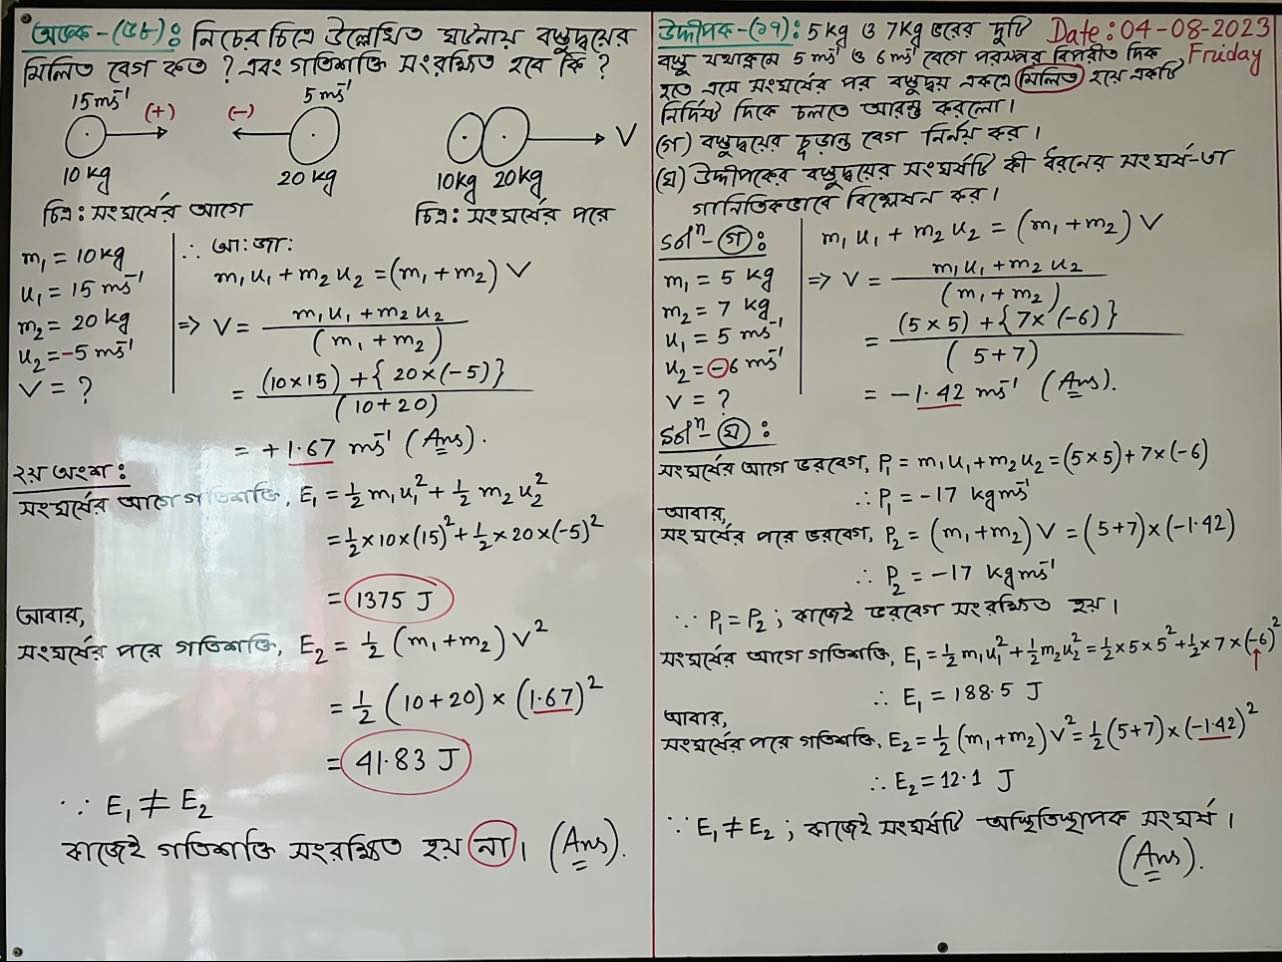 অংক-(৫৮): নিচের চিত্রে উল্লেখিত ঘটনায় বস্তুদ্বয়ের
মিলিত বেগ কত ? এবং গতিশক্তি সংরক্ষিত হবে কি ?
15 ms⁻¹ (+) (-) 5 ms⁻¹
V
10 kg 20 kg 10kg 20kg
চিত্র: সংঘর্ষের আগে চিত্র: সংঘর্ষের পরে
m₁ = 10 kg
u₁ = 15 ms⁻¹
m₂ = 20 kg
u₂ = -5 ms⁻¹
V = ?
∴ আ: জা:
m₁u₁ + m₂u₂ = (m₁ + m₂) V
=> V = (m₁u₁ + m₂u₂) / (m₁ + m₂)
= (10×15) + {20×(-5)} / (10+20)
= +1.67 ms⁻¹ (Ans).
২য় অংশ:
সংঘর্ষের আগে গতিশক্তি, E₁ = ½ m₁u₁² + ½ m₂u₂²
= ½×10×(15)² + ½×20×(-5)²
= 1375 J
আবার,
সংঘর্ষের পরে গতিশক্তি, E₂ = ½ (m₁+m₂) V²
= ½ (10+20) × (1.67)²
= 41.83 J
∵ E₁ ≠ E₂
কাজেই গতিশক্তি সংরক্ষিত হয় না। (Ans).
উদ্দীপক-(১৭): 5kg ও 7kg ভরের দুটি Date: 04-08-2023
বস্তু যথাক্রমে 5 ms⁻¹ ও 6 ms⁻¹ বেগে পরস্পর বিপরীত দিক Friday
হতে এসে সংঘর্ষের পর বস্তুদ্বয় একত্রে মিলিত হয়ে একটি
নির্দিষ্ট দিকে চলতে আরম্ভ করলো।
(গ) বস্তুদ্বয়ের চূড়ান্ত বেগ নির্নয় কর।
(ঘ) উদ্দীপকের বস্তুদ্বয়ের সংঘর্ষটি কী ধরনের সংঘর্ষ-তা
গানিতিকভাবে বিশ্লেষন কর।
Solⁿ-গ:
m₁ = 5 kg
m₂ = 7 kg
u₁ = 5 ms⁻¹
u₂ = -6 ms⁻¹
V = ?
m₁u₁ + m₂u₂ = (m₁+m₂) V
=> V = (m₁u₁ + m₂u₂) / (m₁+m₂)
= (5×5) + {7×(-6)} / (5+7)
= -1.42 ms⁻¹ (Ans).
Solⁿ-ঘ:
সংঘর্ষের আগে ভরবেগ, P₁ = m₁u₁ + m₂u₂ = (5×5) + 7×(-6)
∴ P₁ = -17 kgms⁻¹
আবার,
সংঘর্ষের পরে ভরবেগ, P₂ = (m₁+m₂) V = (5+7)×(-1.42)
∴ P₂ = -17 kgms⁻¹
∵ P₁ = P₂ ; কাজেই ভরবেগ সংরক্ষিত হয়।
সংঘর্ষের আগে গতিশক্তি, E₁ = ½m₁u₁² + ½m₂u₂² = ½×5×5² + ½×7×(-6)²
∴ E₁ = 188.5 J
আবার,
সংঘর্ষের পরে গতিশক্তি, E₂ = ½ (m₁+m₂) V² = ½(5+7)×(-1.42)²
∴ E₂ = 12.1 J
∵ E₁ ≠ E₂ ; কাজেই সংঘর্ষটি অস্থিতিস্থাপক সংঘর্ষ।
(Ans).